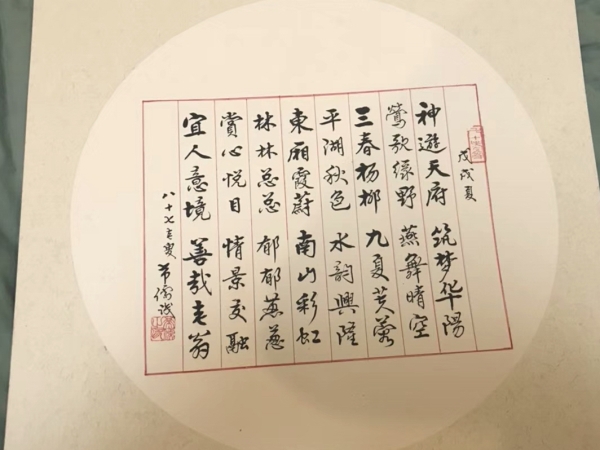 戊戌夏
神遊天府 筑梦华阳
莺歌绿野 燕舞晴空
三春杨柳 九夏芙蓉
平湖秋色 水韵興隆
東厢霞蔚 南山彩虹
林林总总 郁郁葱葱
赏心悦目 情景交融
宜人意境 善哉老翁
八十七叟